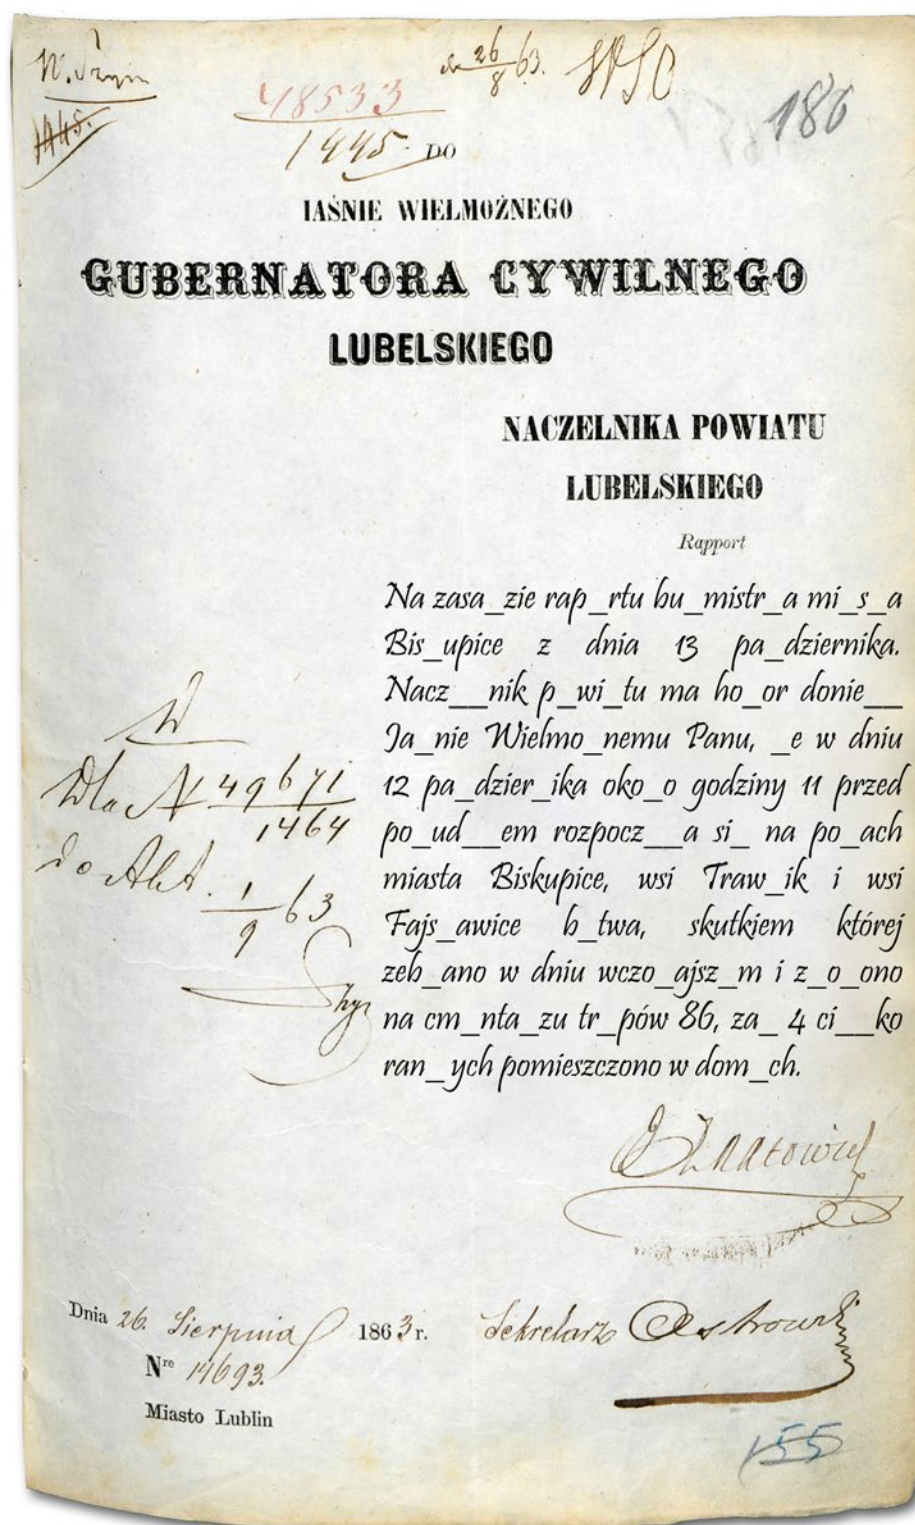 26/8 63.
48533
186
1445.
1445. DO
IAŚNIE WIELMOŻNEGO
GUBERNATORA CYWILNEGO
LUBELSKIEGO
NACZELNIKA POWIATU
LUBELSKIEGO
Rapport
Na zasa_zie rap_rtu bu_mistr_a mi_s_a
Bis_upice z dnia 13 pa_dziernika.
Nacz__nik p_wi_tu ma ho_or donie__
Ja_nie Wielmo_nemu Panu, _e w dniu
12 pa_dzier_ika oko_o godziny 11 przed
po_ud__em rozpocz__a si_ na po_ach
miasta Biskupice, wsi Traw_ik i wsi
Fajs_awice b_twa, skutkiem której
zeb_ano w dniu wczo_ajsz_m i z_o_ono
na cm_nta_zu tr_pów 86, za_ 4 ci__ko
ran_ych pomieszczono w dom_ch.
Dla N 49671
1464
do Akt.
1/9 63
Dnia 26. Sierpnia 1863 r.
Sekretarz Ostrowski
Nre 14693.
Miasto Lublin
155